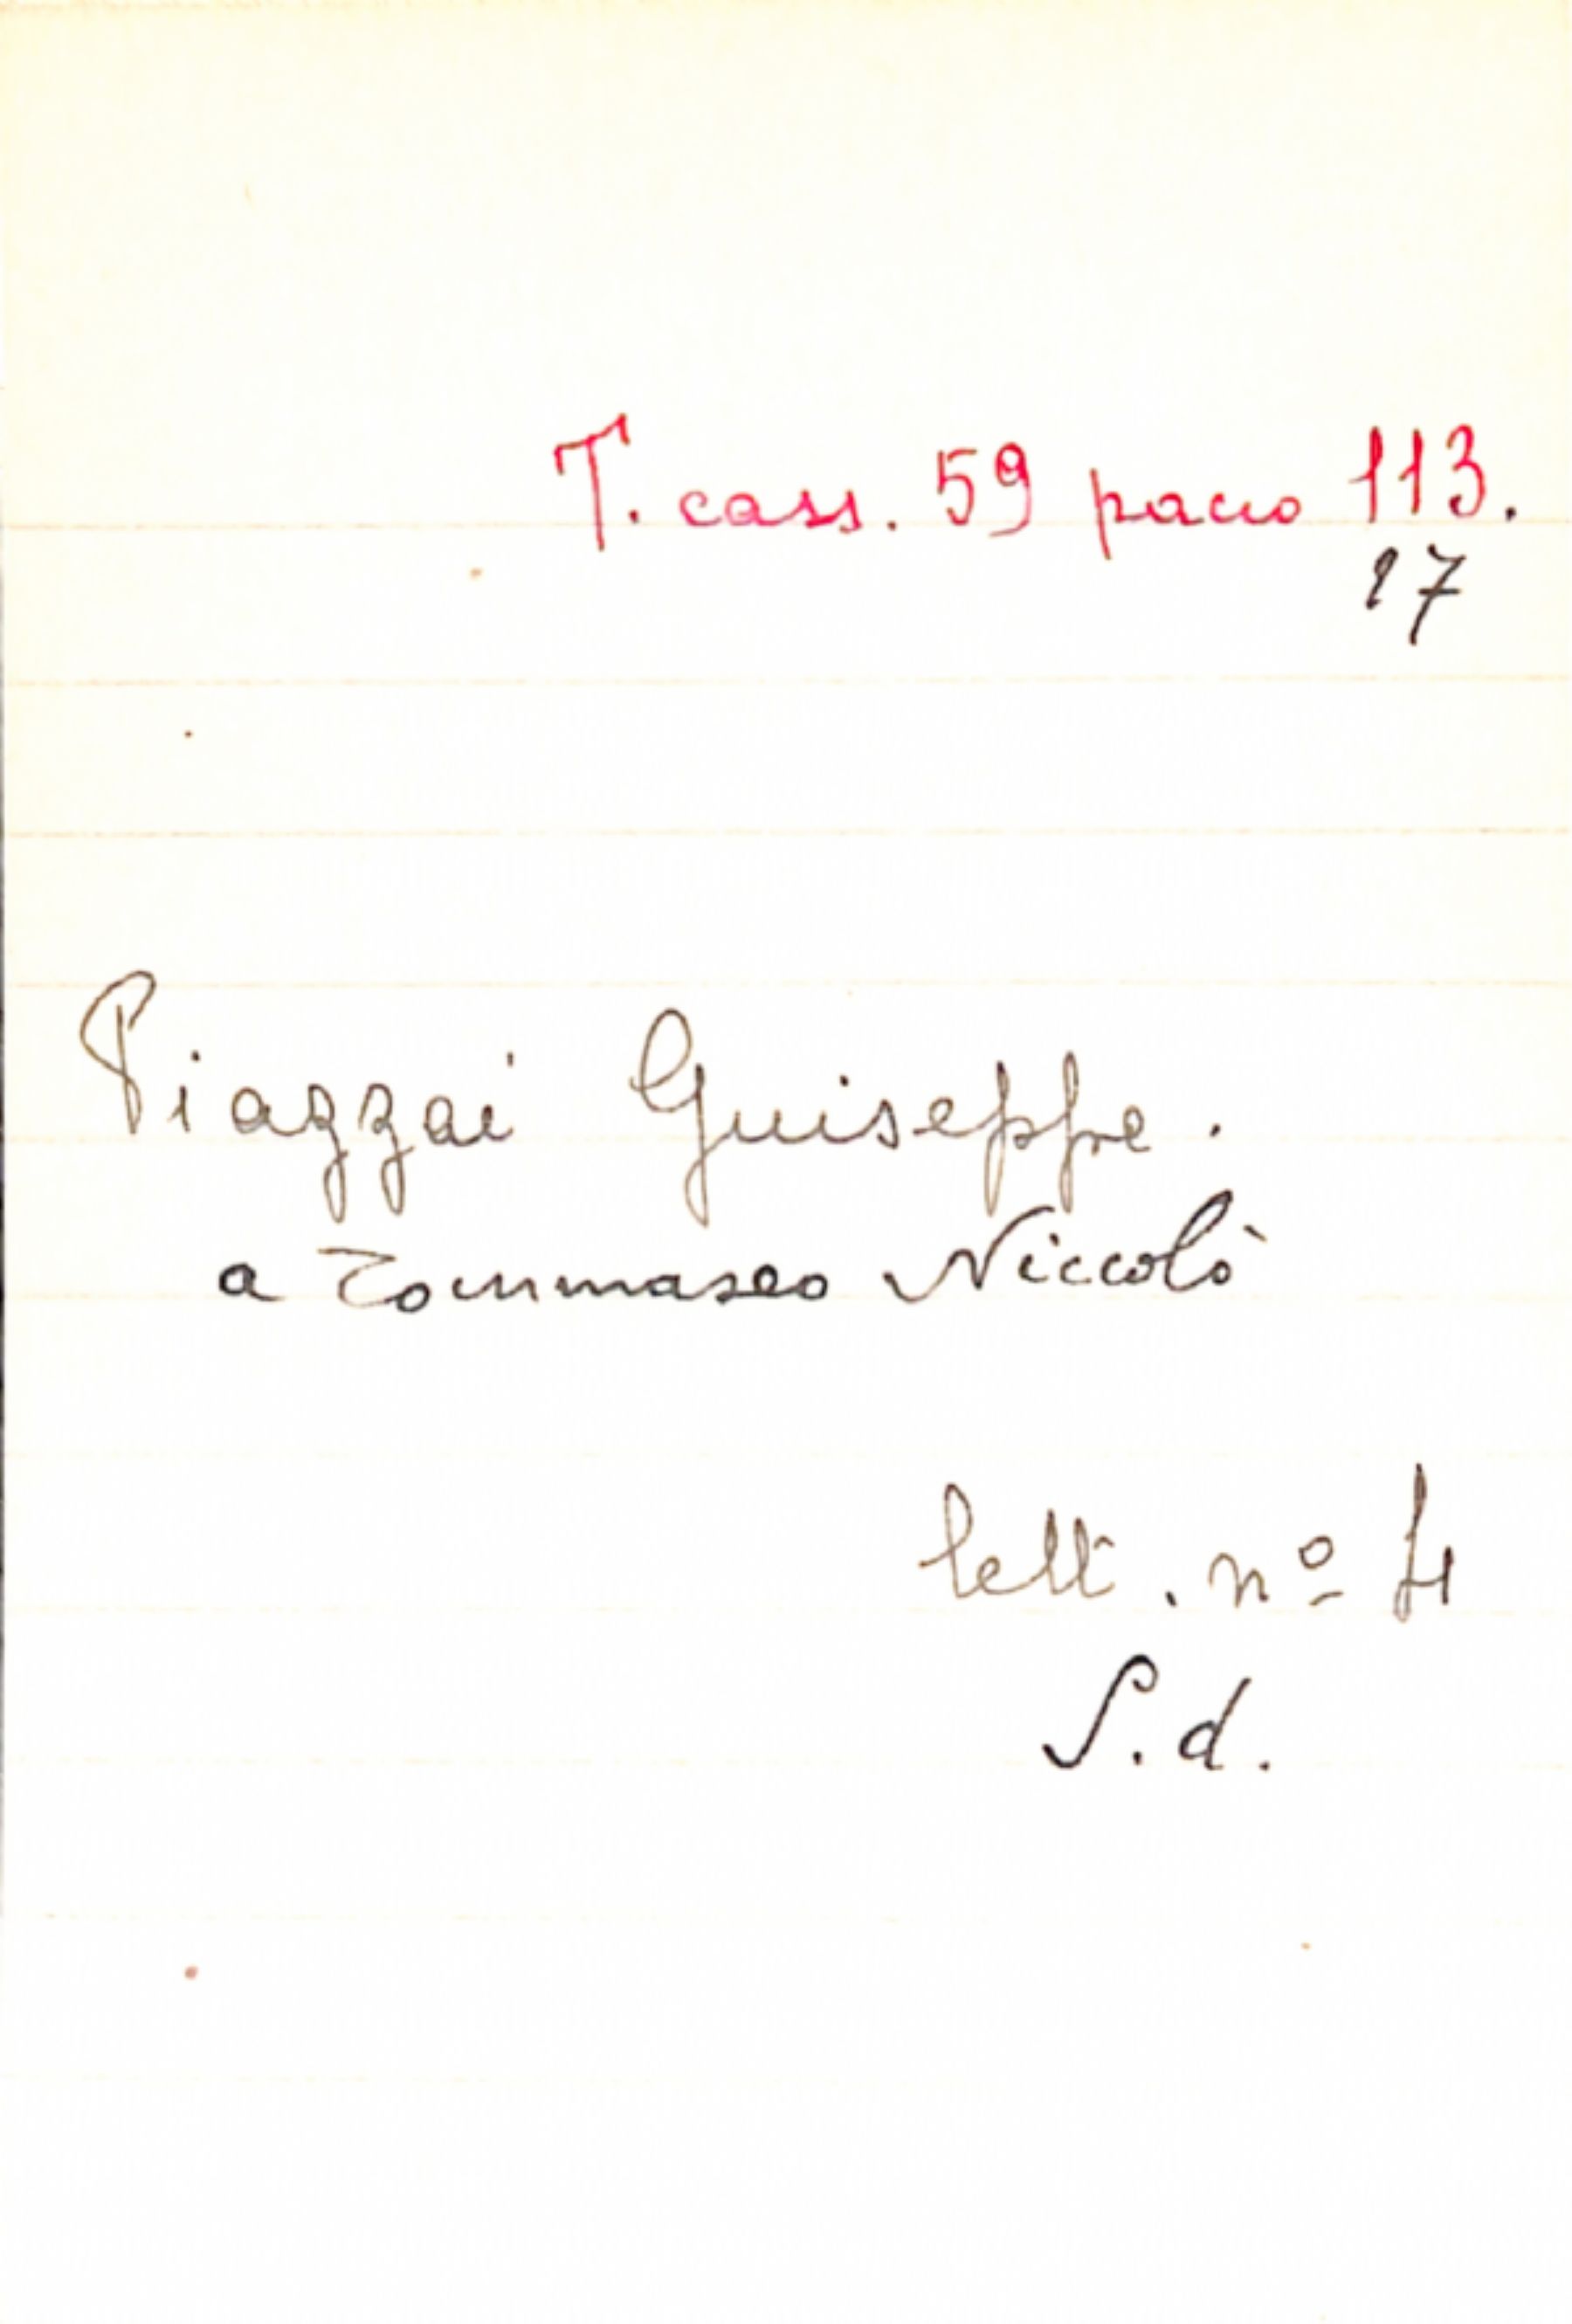 T. cass. 59 pacco 113.
17
Piazzai Guiseppe.
a Tommaseo Niccolò
lett. nº 4
S. d.